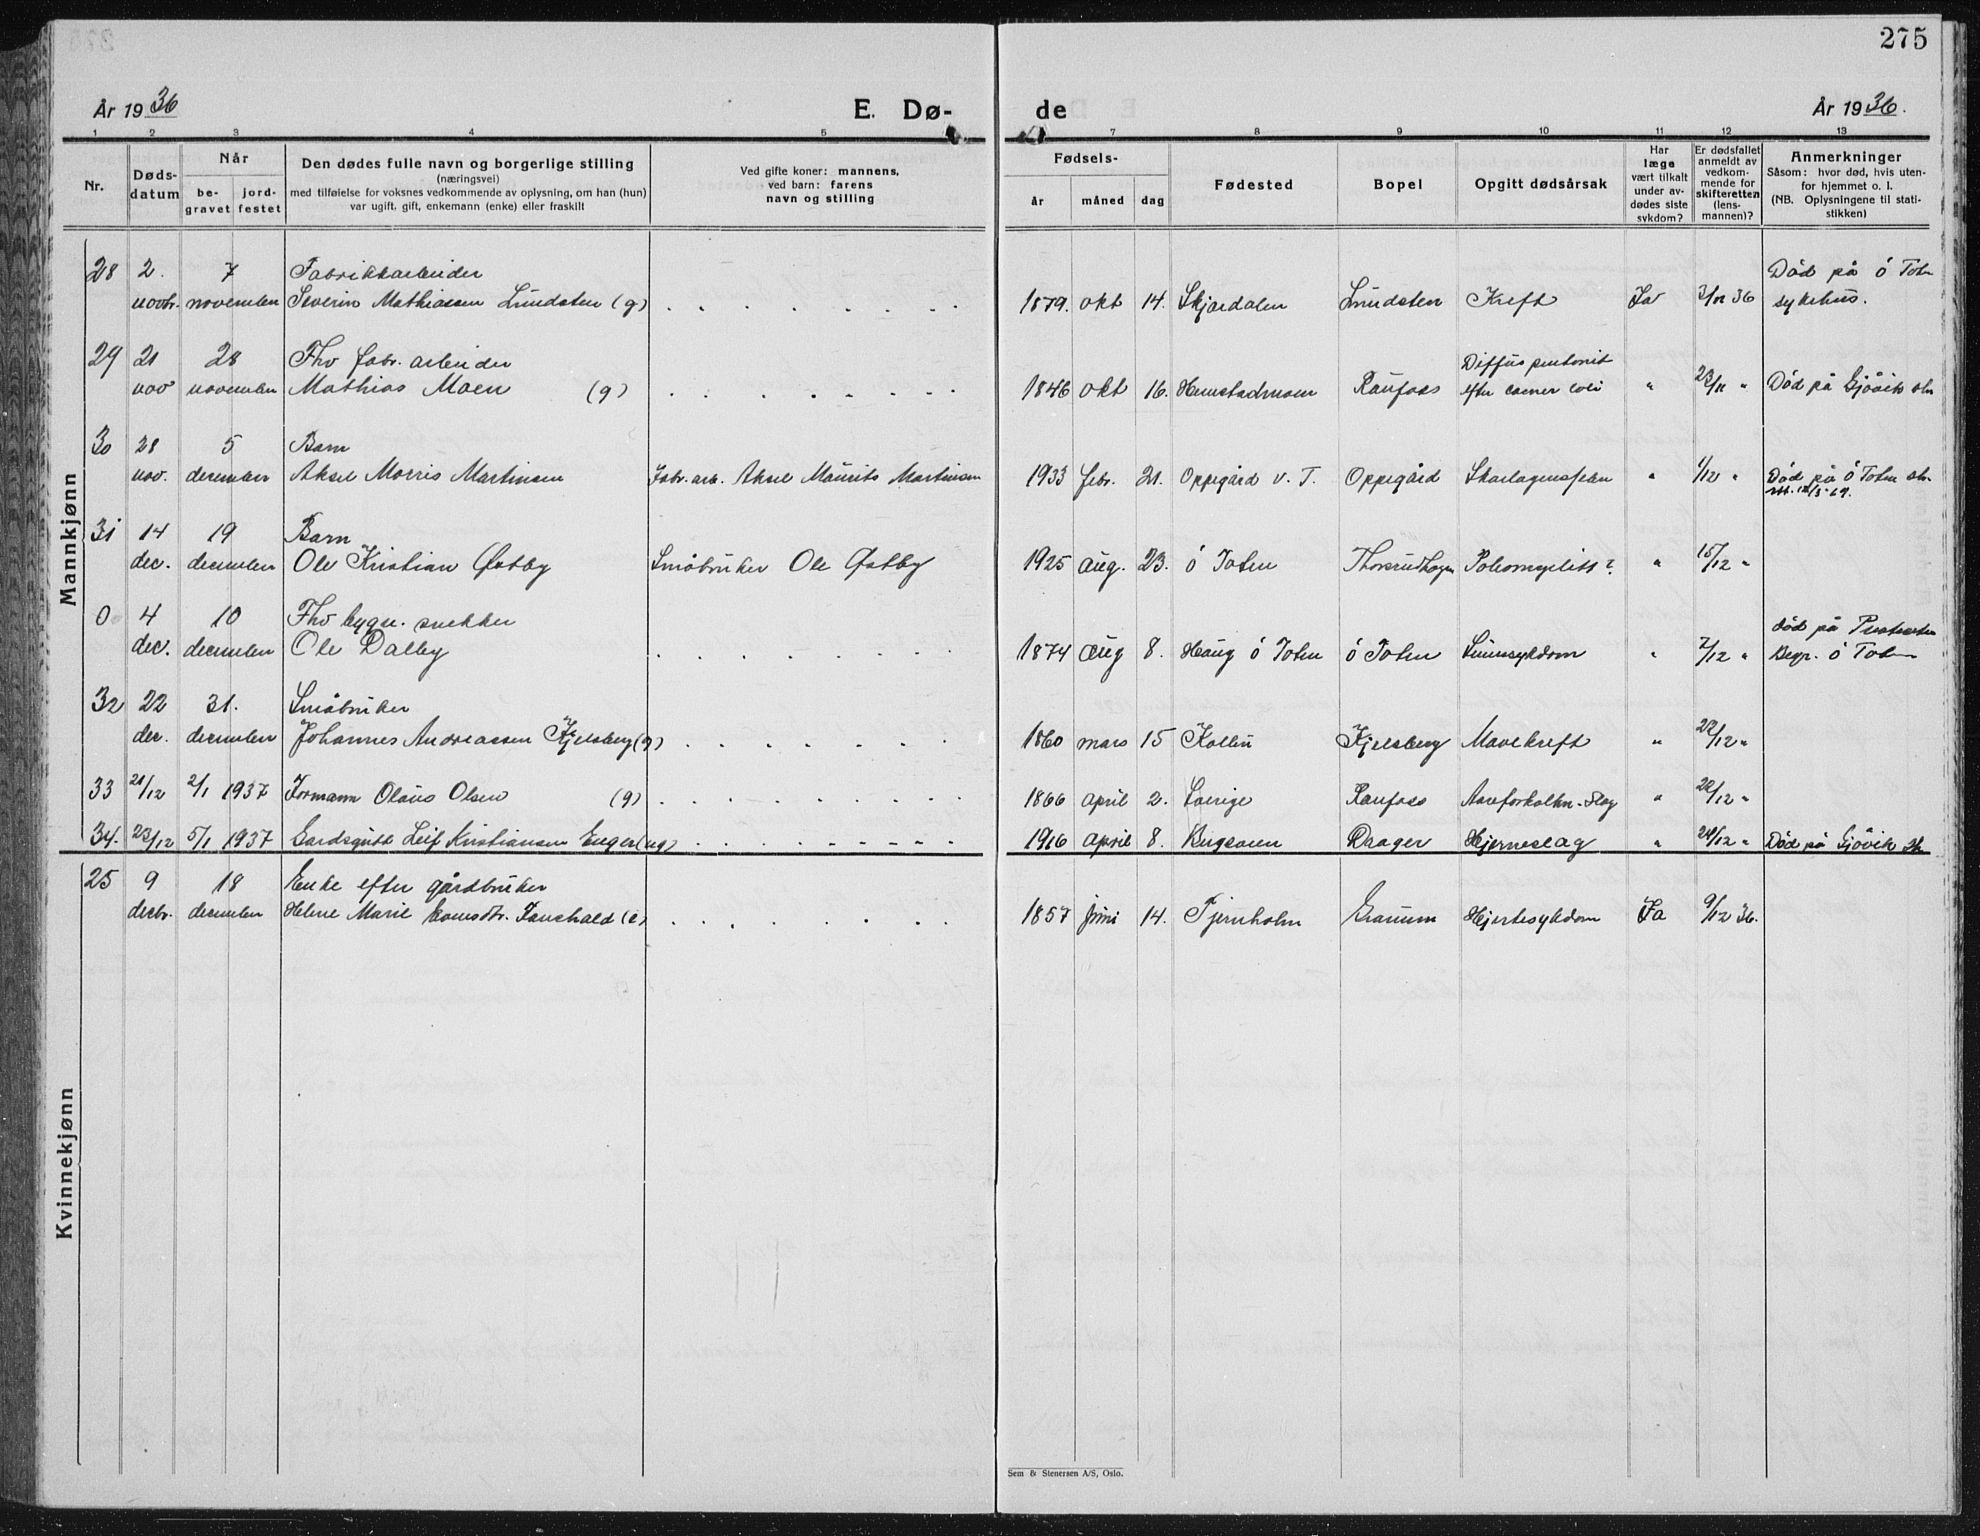 275
År 1936 E. Dø- de År 1936.
1 2 3 4 5 7 8 9 10 11 12 13
Nr.
Døds-
datum
Når
be-
gravet
jord-
festet
Den dødes fulle navn og borgerlige stilling
(næringsvei)
med tilføielse for voksnes vedkommende av oplysning, om han (hun)
var ugift, gift, enkemann (enke) eller fraskilt
Ved gifte koner: mannens,
ved barn: farens
navn og stilling
Fødsels-
år måned dag
Fødested
Bopel
Opgitt dødsårsak
Har
læge
vært tilkalt
under av-
dødes siste
sykdom?
Er dødsfallet
anmeldt av
vedkom-
mende for
skifteretten
(lens-
mannen)?
Anmerkninger
Såsom: hvor død, hvis uten-
for hjemmet o. l.
(NB. Oplysningene til stati-
stikken)
Mannkjønn
28 2. 7 Fabrikkarbeider Død på ö Toten
novbr. november Severin Mathiassen Lundsten (g) 1879. okt 14. Skjardalen Lundsten Kreft Ja 3/11 36 sykehus.
29 21 28 Fhv fabr. arbeider Diffus peritonit
nov november Mathias Moen (g) 1846 okt 16. Hunstadmoen Raufoss efter cancer coli " 23/11 " Død på Gjövik
30 28 5 Barn
nov. december Aksel Morris Martinsen Fabr. arb. Aksel Maurits Martinsen 1933 febr. 21. Oppegård v. T. Oppegård Skarlagensfeber " 1/12 " Død på ö Toten
31 14 19 Barn
dec. december Ole Kristian Østby Småbruker Ole Østby 1925 aug. 23. ö Toten Thorsrudhagen Poliomyelitt? " 15/12 "
0 4 10 Fhv bygn. snekker død på
dec. december Ole Dalby 1874 aug 8. Haug ö Toten ö Toten Sinnsykdom " 7/12 " Begr. ö Toten
32 22 31. Småbruker
dec. december Johannes Andreassen Kjelsberg (g) 1860 mars 15 Kolbu Kjelsberg Mavekreft " 22/12 "
33 21/12 2/1 1937 Formann Olaus Olsen (g) 1866 april 2. Sverige Raufoss Aareforkalkn. Slag " 22/12 "
34. 23/12 5/1 1937 Gardsgutt Leif Kristiansen Enger (ug) 1916 april 8. Raager Hjerneslag " 24/12 " Død på Gjövik
Kvinnekjønn
25 9 18 Enke efter gårdbruker
decbr. december Helene Marie (e) 1857 juni 14. Tjernholm Granum Hjertesykdom Ja 9/12 36.
Sem & Stenersen A/S, Oslo.